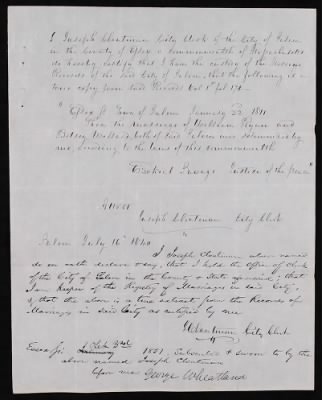 I Joseph Cloutman City Clerk of the City of Salem
in the County of Essex & Commonwealth of Massachusetts
do hereby certify that I have the custody of the Marriage
Records of the Said City of Salem, that the following is a
true copy from said Records Vol
"Essex ss Town of Salem January 22
Then the marriage of William and
Betsey both of Said Salem was solemnized by
me, according to the laws of this commonwealth
Ezekiel Savage Justice of the peace"
Attest
Joseph Cloutman City Clerk
Salem July 16th
I Joseph Cloutman above named
do on oath declare & say, that I hold the Office of Clerk
of the City of Salem in the County & State aforesaid; that
I am Keeper of the Registry of Marriages in said City,
& that the above is a true extract from the Records of
Marriages in said City as certified by me
J Cloutman City Clerk
Essex ss. 1851 Subscribed & sworn to by the
above named Joseph Cloutman
Before me George Wheatland